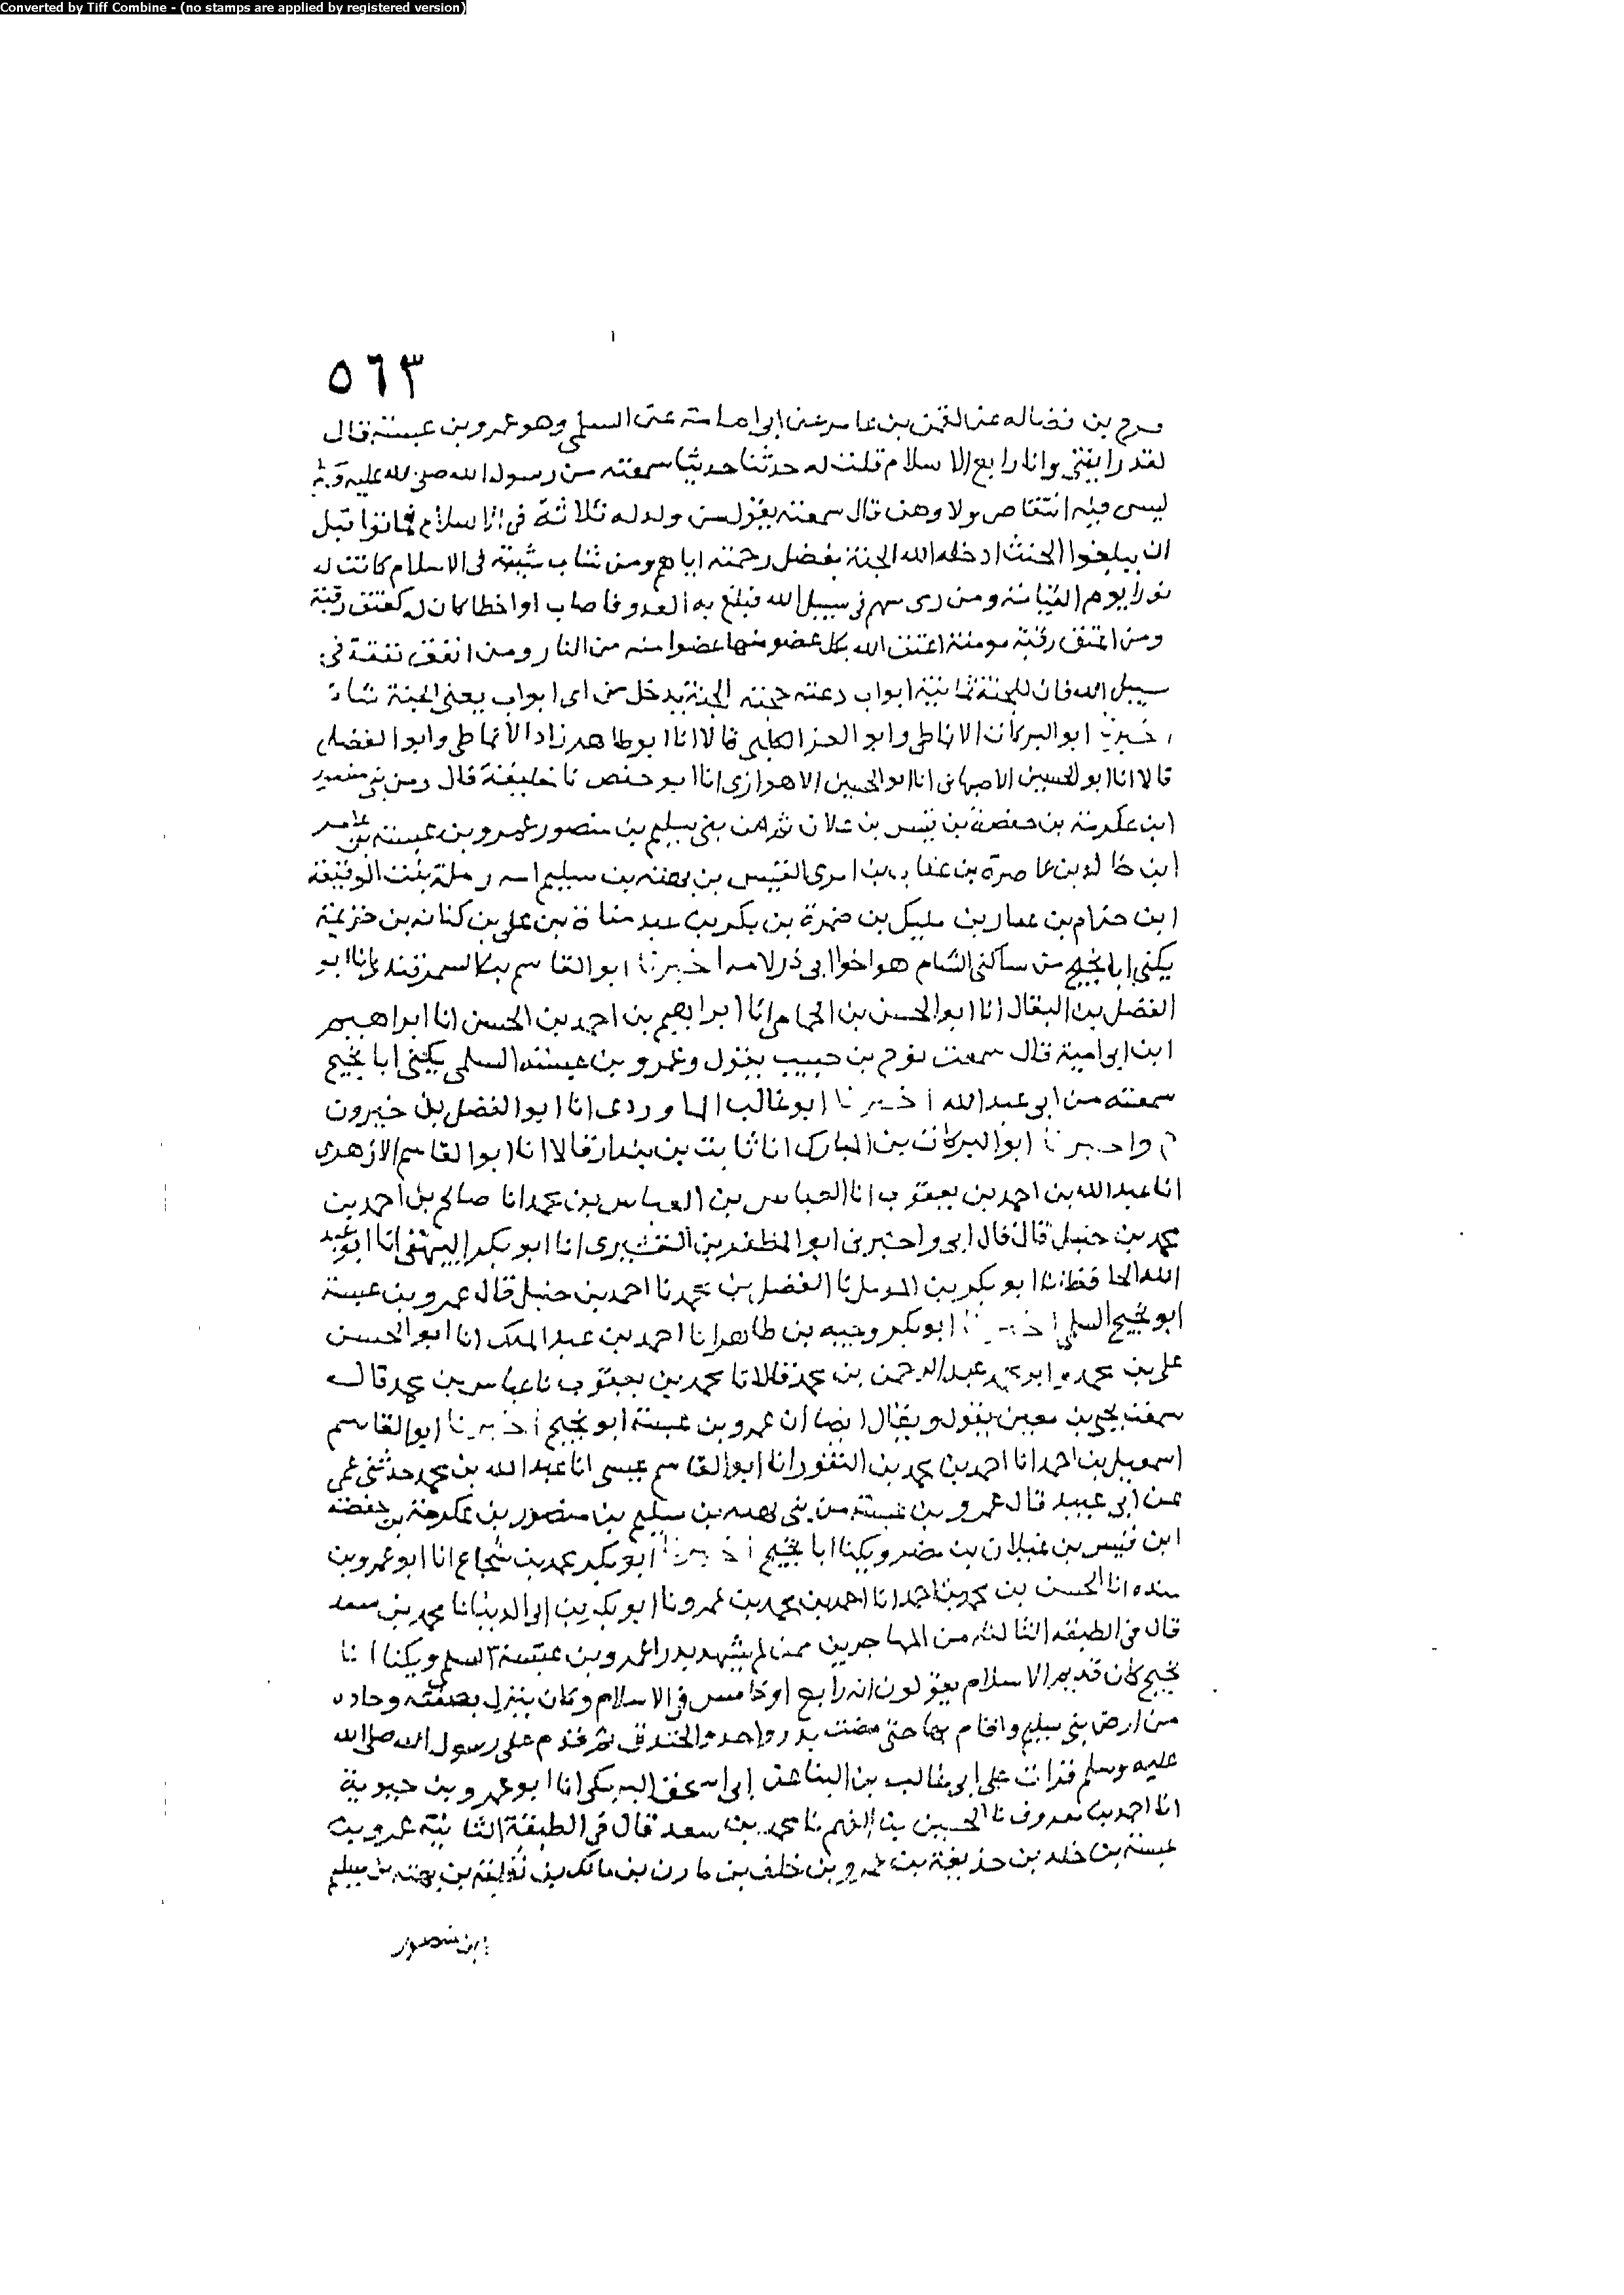 Converted by Tiff Combine - (no stamps are applied by registered version)
٥٦٣
فرج بن فضاله عن لقمن بن عامر عن ابى امامة عن السلمى وهو عمرو بن عبسة قال
لقد رايتنى وانا رابع الاسلام قلت له حدثنا حديثا سمعته من رسول الله صلى الله عليه
ليس فيه انتقاص ولا وهن قال سمعته يقول من ولد له ثلاثة فى الاسلام فماتوا قبل
ان يبلغوا الحنث ادخله الله الجنة بفضل رحمته اياهم ومن شاب شيبة فى الاسلام كانت له
نورا يوم القيامة ومن رمى سهم فى سبيل الله فبلغ به العدو فاصاب او اخطا كان له كعتق رقبة
ومن اعتق رقبة مومنة اعتق الله بكل عضو منها عضوا منه من النار ومن انفق نفقة فى
سبيل الله فان للجنة ثمانية ابواب دعته حجبة الجنة يدخل من اى ابواب يعنى الجنة شاء
اخبرنا ابو البركات الانماطى وابو العز الكيلى قالا انا ابو طاهر زاد الانماطى وابو الفضل
قالا انا ابو الحسين الاصبهانى انا ابو الحسين الاهوازى انا ابو حفص نا خليفة قال ومن بنى منصور
ابن عكرمة بن حفصة بن قيس بن علان ثم من بنى سليم بن منصور عمرو بن عبسة بن عامر
ابن خالد بن عاصرة بن عتاب بن امرى القيس بن بهثة بن سليم امه رملة بنت الوقيعة
ابن حرام بن عفار بن مليل بن ضمرة بن بكر بن عبد مناة بن على بن كنانه بن خزيمة
يكنى ابا نجيح من ساكنى الشام هو اخوا ابى ذر لامه اخبرنا ابو القاسم بن السمرقندى انا ابو
الفضل بن البقال انا ابو الحسن بن الحمامى انا ابراهيم بن احمد بن الحسن انا ابراهيم
ابن ابى امية قال سمعت نوح بن حبيب يقول وعمرو بن عبسة السلمى يكنى ابا نجيح
سمعته من ابى عبد الله اخبرنا ابو غالب الماوردى انا ابو الفضل بن خيرون
ح واخبرنا ابو البركات بن المبارك انا ثابت بن بندار قالا انا ابو القاسم الازهرى
انا عبد الله بن احمد بن يعقوب انا العباس بن العباس بن محمد انا صالح بن احمد بن
محمد بن حنبل قال قال ابى واخبرنى ابو المظفر بن القشيرى انا ابو بكر البيهقى انا ابو عبد
الله الحافظ انا ابو بكر بن المومل نا الفضل بن محمد نا احمد بن حنبل قال عمرو بن عبسة
ابو نجيح السلمى اخبرنا ابو بكر وجيه بن طاهر انا احمد بن عبد الملك انا ابو الحسن
على بن محمد وابو محمد عبد الرحمن بن محمد قالا نا محمد بن يعقوب نا عباس بن محمد قال
سمعت يحيى بن معين يقول ويقال ايضا ان عمرو بن عبسة ابو نجيح اخبرنا ابو القاسم
اسمعيل بن احمد انا احمد بن محمد بن النقور انا ابو القاسم عيسى انا عبد الله بن محمد حدثنى عمى
عن ابى عبيد قال عمرو بن عبسة من بنى بهثه بن سليم بن منصور بن عكرمة بن حفصة
ابن قيس بن غيلان بن مضر ويكنا ابا نجيح اخبرنا ابو بكر محمد بن شجاع انا ابو عمرو بن
منده انا الحسن بن محمد بن احمد انا احمد بن محمد بن عمر ونا ابو بكر بن ابى الدنيا نا محمد بن سعد
قال فى الطبقه الثالثه من المهاجرين ممن لم يشهد بدرا عمرو بن عبسة السلمى ويكنا ابا
نجيح كان قديم الاسلام يقولون انه رابع او خامس فى الاسلام وكان ينزل بصفنه وحاده
من ارض بنى سليم واقام بها حتى مضت بدر واحد والخندق ثم قدم على رسول الله صلى الله
عليه وسلم قرات على ابى غالب بن البنا عن ابى اسحق البرمكى انا ابو عمرو بن حيوية
انا احمد بن معروف نا الحسين بن الفهم نا محمد بن سعد قال فى الطبقة الثانية عمرو بن
عبسة بن خلد بن حذيفة بن عمرو بن خلف بن مازن بن مالك بن ثعلبة بن بهثه بن سليم
ابن منصور